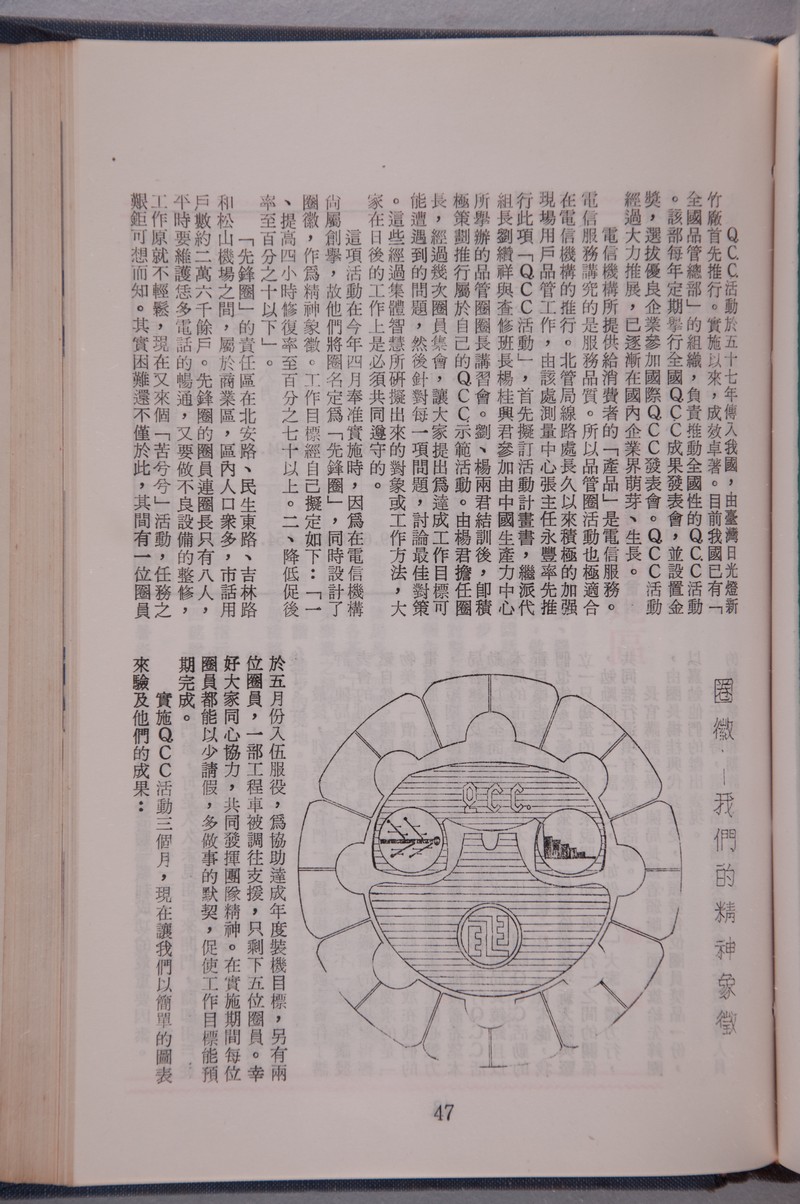 QCC活動於五十七年傳入我國，由臺灣日光燈新
竹廠首先推行。實施以來，成效卓著。目前我國已有「
全國品管總部」的組織，負責推動全國性的QCC活動
。該部每年定期擧行全國QCC成果發表會，並設置金
獎，選拔優良企業參加國際QCC發表會。QCC活動
經過大力推展，已逐漸在國內企業界萌芽、生長。
電信機構所提供給消費者的「產品」是電信服務。
電信服務講究的是服務品質。所以品管圈活動也極適合
在電信機構的推行。北管局線路處長久以來積極的加强
現場用戶品管工作，由該處測量中心張主任永豐率先推
行此項「QCC活動」，首先擬訂活動計畫書，繼派代
組長劉纘祥與查修班長楊桂興君參加由中國生產力中心
所擧辦的品管圈圈長講習會。劉、楊兩君結訓後，卽積
極策劃推行屬於自己的QCC示範活動。由楊君擔任圈
長，經過幾次圈員集會，讓大家提出爲達成工作目標可
能遭遇到的問題，然後針對每一項問題，討論最佳對策
。這些經過集體智慧所硏擬出來的對象或工作方法，大
家在日後的工作上是必須共同遵守的。
這項活動在今年四月奉准實施時，因爲在電信機構
尙屬創擧，故他們將圈名定爲「先鋒圈」，同時設計了
圈徽，作爲精神象徵。工作目標經自己擬定如下：「一
、提高四小時修復率至百分之七十以上。二、降低促後
率至百分之十以下」。
「先鋒圈」的責任區在北安路、民生東路、吉林路
和松山機場之間，屬於商業區，區內人口衆多，市話用
戶數約二萬六千餘戶。先鋒圈的圈員連圈長只有八人，
平時要維護恁多電話的暢通，又要做不良設備的整修，
工作原就不輕鬆，現在又來個「苦兮兮」活動，任務之
艱鉅可想而知。其實困難還不僅於此，其間有一位圈員
圈徽·—我們的精神象徵
Q.C.C.
於五月份入伍服役，爲協助達成年度裝機目標，另有兩
位圈員，一部工程車被調往支援，只剩下五位圈員。幸
好大家同心協力，共同發揮團隊精神。在實施期間每位
圈員都能以少請假，多做事的默契，促使工作目標能預
期完成。
實施QCC活動三個月，現在讓我們以簡單的圖表
來驗及他們的成果：
47